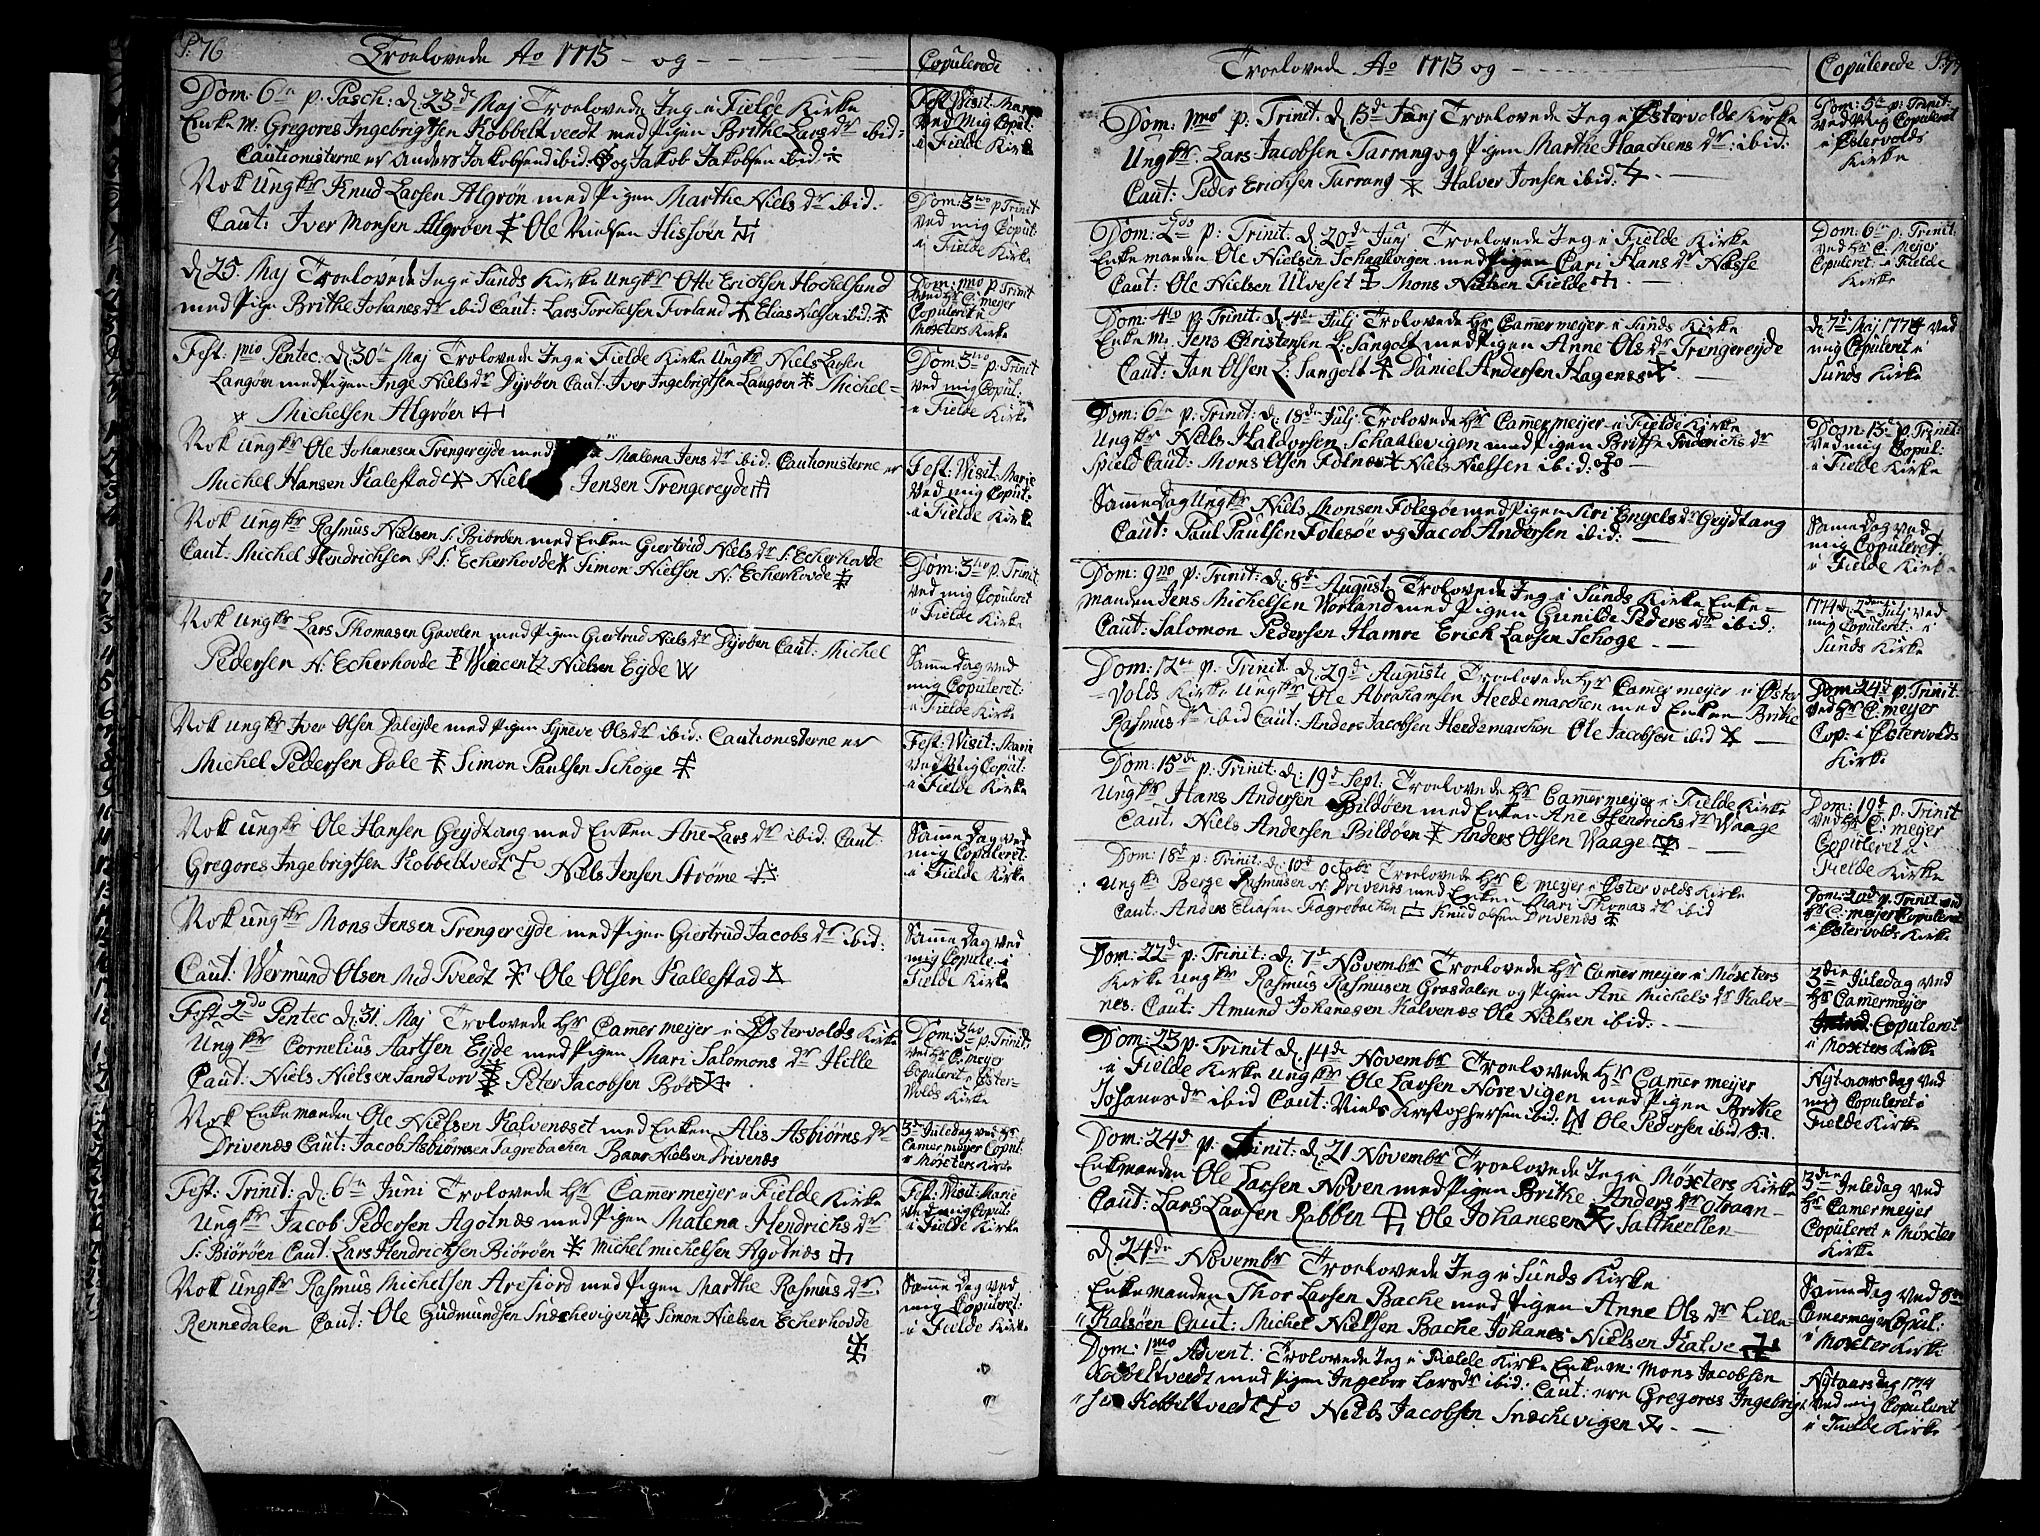 P: 76
Troelovede Ao 1773 - og -
Copulerede
Dom: 6te p. Pasch: d. 23de Maj Troelovede Jeg i Fielde Kirke
Enke m: Gregores Ingebrigtsen Kobbeltveedt med Pigen Brithe Lars dr ibid:
Cautionisterne er Anders Jakobsen ibid: og Jakob Jakobsen ibid:
Fest: Visit: Mariæ
Ved Mig Copul:
i Fielde Kirke
Nok Ungkr Knud Larsen Algrøn med Pigen Marthe Niels dr ibid:
Caut: Iver Monsen Algrøen Ole Nielsen Hissøen
Dom: 3tio p Trinit
ved mig Copul:
i Fielde Kirke
d. 25 Maj Troelovede Jeg i Sunds Kirke Ungkr Otte Erichsen Hockelsund
med Pige Brithe Johanes dr ibid Caut: Lars Torchelsen Forland Elias Nielsen ibid:
Dom: 1mo p. Trinit
ved Hr C: Meyer
Copuleret i
Møxters Kirke
Fest: 1mo Pentec: d: 30te Maj Trolovede Jeg i Fielde Kirke Ungkr Niels Larsen
Langøen med Pigen Inge Niels dr Dyrøen Caut: Iver Ingebrigtsen Langøen Michel
Michelsen Algrøen
Dom: 3tio p: Trinit
ved mig Copul:
i Fielde Kirke
Nok Ungkr Ole Johanesen Trengereyde med Malena Jens dr ibid: Cautionisterne er
Michel Hansen Kalestad Niels Jensen Trengereyde
Fest: Visit: Marie
Ved mig Copul:
i Fielde Kirke
Nok Ungkr Rasmus Nielsen S: Biørøen med Enken Giertrud Niels dr S: Echerhovde
Caut: Michel Hendrichsen S: Echerhovde Simon Nielsen N: Echerhovde
Dom: 3tio p. Trinit
Ved mig Copuleret
i Fielde Kirke
Nok Ungkr Lars Thomasen Gavelen med Pigen Giertrud Niels dr Dyrøen Caut: Michel
Pedersen N: Echerhovde Wincentz Nielsen Eyde
Same Dag ved
mig Copuleret:
i Fielde Kirke
Nok Ungkr Iver Olsen Daleyde med Pigen Syneve Ols dr ibid: Cautionisterne er
Michel Pedersen Dale Simon Paulsen Schoge
Fest: Visit: Marie
Ved Mig Copul:
i Fielde Kirke
Nok Ungkr Ole Hansen Geydtang med Enken Ane Lars dr ibid: Caut:
Gregores Ingebrigtsen Kobbeltvedt Niels Jensen Strøme
Same Dag ved
mig Copuleret:
i Fielde Kirke
Nok Ungkr Mons Jensen Trengereyde med Pigen Giertrud Jacobs dr ibid:
Caut: Wermund Olsen Tveedt Ole Olsen Kallestad
Same Dag ved
mig Copule: i
Fielde Kirke
Fest: 2do Pentec d: 31. Maj Trolovede Hr Camermeyer i Østervolds Kirke
Ungkr Cornelius Aartsen Eyde med Pigen Mari Salomons dr Hille
Caut: Niels Nielsen Sandtorv Peter Jacobsen Boe
Dom: 3tio p: Trinit:
ved Hr C: Meyer
Copuleret i Øster-
volds Kirke
Nok Enkemanden Ole Nielsen Kalvenæset med Enken Alis Asbiørns dr
Drivenæs Caut: Jacob Asbiørnsen Fagrebachen Baar Nielsen Drivenæs
3d Juledag ved Hr
Camermeyer Copul:
i Møxters Kirke
Fest: Trinit: d: 6te Juni Trolovede Hr Camermeyer i Fielde Kirke
Ungkr Jacob Pedersen Agotnæs med Pigen Malena Hendrichs dr
S: Biørøen Caut: Lars Hendrichsen Biørøen Michel Michelsen Agotnæs
Fest: Visit: Marie
Ved mig Copul:
i Fielde Kirke
Nok Ungkr Rasmus Michelsen Arefiord med Pigen Marthe Rasmus dr
Rennedalen Caut: Ole Gudmundsen Snechevigen Simon Nielsen Echerhovde
Same Dag ved
mig Copuleret:
i Fielde Kirke
Troelovede Ao 1773 og -
Copulerede P: 77
Dom: 1mo p: Trinit: d. 13de Junj Troelovede Jeg i Østervolds Kirke
Ungkr: Lars Jacobsen Tarrang og Pigen Marthe Haachens dr: ibid:
Caut: Peder Erichsen Tarrang Halver Jonsen ibid:
Dom: 5te p: Trinit:
Ved Mig Copuleret
i Østervolds
Kirke
Dom: 2do p: Trinit: d. 20de Junj Troelovede Jeg i Fielde Kirke
Enkemanden Ole Nielsen Schaalevigen med Pigen Cari Hans dr Næsse
Caut: Ole Nielsen Ulveset Mons Nielsen Fielde
Dom: 6te p: Trinit:
ved Hr C: Meyer
Copuleret: i Fielde
Kirke
Dom: 4to p: Trinit: d: 4de Julj Trolovede Hr Camermeyer i Sunds Kirke
Enke m: Jens Christensen L: Sangolt med Pigen Anne Ols dr Trengereyde
Caut: Jan Olsen L: Sangolt Daniel Andersen Hagenes
d: 7de Maj 1774 ved
mig Copuleret i
Sunds Kirke
Dom: 6te p: Trinit: d. 18de Julj Trolovede Hr Camermeijer i Fielde Kirke
Ungkr Niels Haldorsen Schaalevigen med Pigen Brithe Friderichs dr
Spield Caut: Mons Olsen Folnes Niels Nielsen ibid:
Dom: 13de p: Trinit:
Ved mig Copul:
i Fielde Kirke
Same Dag Ungkr Niels Monsen Folesøe med Pigen Siri Engels dr Geydtang
Caut: Paul Paulsen Folesøe og Jacob Andersen ibid:
Same Dag ved
mig Copuleret
i Fielde Kirke
Dom: 9no p: Trinit: d: 8de August: Trolovede Jeg i Sunds Kirke Enke-
manden Jens Michelsen Vorland med Pigen Gunilde Peders dr ibid:
Caut: Salomon Pedersen Hamre Erich Larsen Schoge
1774 d. 7de Julj ved
mig Copuleret: i
Sunds Kirke
Dom: 12te p: Trinit: d. 29de Augusti Troelovede Hr Camermeyer i Øster
volds Kirke Ungkr Ole Abrahamsen Heedemarchen med Enken Brithe
Rasmus dr ibid Caut: Anders Jacobsen Heedemarchen Ole Jacobsen ibid
Dom: 24de p. Trinit:
ved Hr C: meyer
Cop: i Østervolds
Kirke
Dom: 15de p: Trinit: d: 19d Sept: Troelovede Hr Camermeyer i Fielde Kirke
Ungkr Hans Andersen Bildøen med Enken Ane Hendrichs dr Waage
Caut: Niels Andersen Bildøen Anders Olsen Waage
Dom: 19d p: Trinit
ved Hr C: meyer
Copuleret i
Fielde Kirke
Dom: 18d p: Trinit: d: 10d Octobr Troelovede Hr C meyer i Østervolds Kirke
Ungkr Berge Rasmusen N: Drivenes med Enken Mari Thomas dr ibid
Caut: Anders Eliasen Fagrebachen Knud Olsen Drivenes
Dom: 20de p. Trinit ved
Hr C: meyer Copuleret
i Østervolds Kirke
Dom: 22de p: Trinit: d. 7d Novembr Troelovede Hr Camermeyer i Møxters
Kirke Ungkr Rasmus Rasmusen Grosdalen og Pigen Ane Michels dr Kalve-
nes. Caut: Amund Johanesen Kalvenæs Ole Nielsen ibid:
3die Juledag ved
Hr Camermeyer
Copuleret
i Møxters Kirke
Dom: 23 p. Trinit d. 14de Novembr Troelovede Hr Camermeijer
i Fielde Kirke Ungkr Ole Larsen Norevigen med Pigen Brithe
Johanes dr ibid Caut: Niels Kristophersen ibid: Ole Pedersen ibid
Nytaarsdag ved
mig Copuleret i
Fielde Kirke
Dom: 24de p. Trinit: d. 21 Novembr Troelovede Jeg i Møxters Kirke
Enkmanden Ole Larsen Noven med Pigen Brithe Anders dr Otraan
Caut: Lars Larsen Rabben Ole Johanesen Saltheellen
3die Juledag ved
Hr Camermeyer
Copuleret i Møxter
Kirke
d. 24de Novembr Troelovede Jeg i Sunds Kirke
Enkemanden Thor Larsen Bache med Pigen Anne Ols dr Lille
Kalsøen Caut: Michel Nielsen Bache Johanes Nielsen Kalve
Same Dag ved Hr
Camermeyer Copul:
i Moxter Kirke
Dom: 1mo Advent: Trolovede Jeg i Fielde Kirke Enke m: Mons Jacobsen
Kobbeltveedt med Pigen Ingebor Lars dr ibid: Caut: ere Gregores Ingebrigt
sen Kobbeltveedt Niels Jacobsen Snechevigen
Nytaarsdag 1774
Ved mig Copuleret
i Fielde Kirke